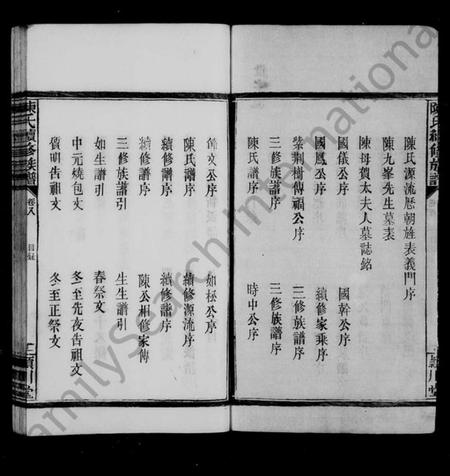 陳氏續修族譜
陳氏源流歷朝旌表義門序
陳九峯先生墓表
陳母賀太夫人墓誌銘
國儀公序 國幹公序
國鳳公序 續修家乘序
紫荆樹傳福公序 三修族譜序
三修族譜序 三修族譜序
陳氏譜序 時中公序
文公序 如極公序
陳氏譜序 續修源流序
續修譜序 續修譜序
續修譜序 陳公相修家傳
三修族譜引 生生譜引
如生譜引 春祭文
中元燒包文 冬至先夜告祖文
質明告祖文 冬至正祭文
陳氏續修族譜 卷八 目錄 二 潁川堂
FamilySearch International